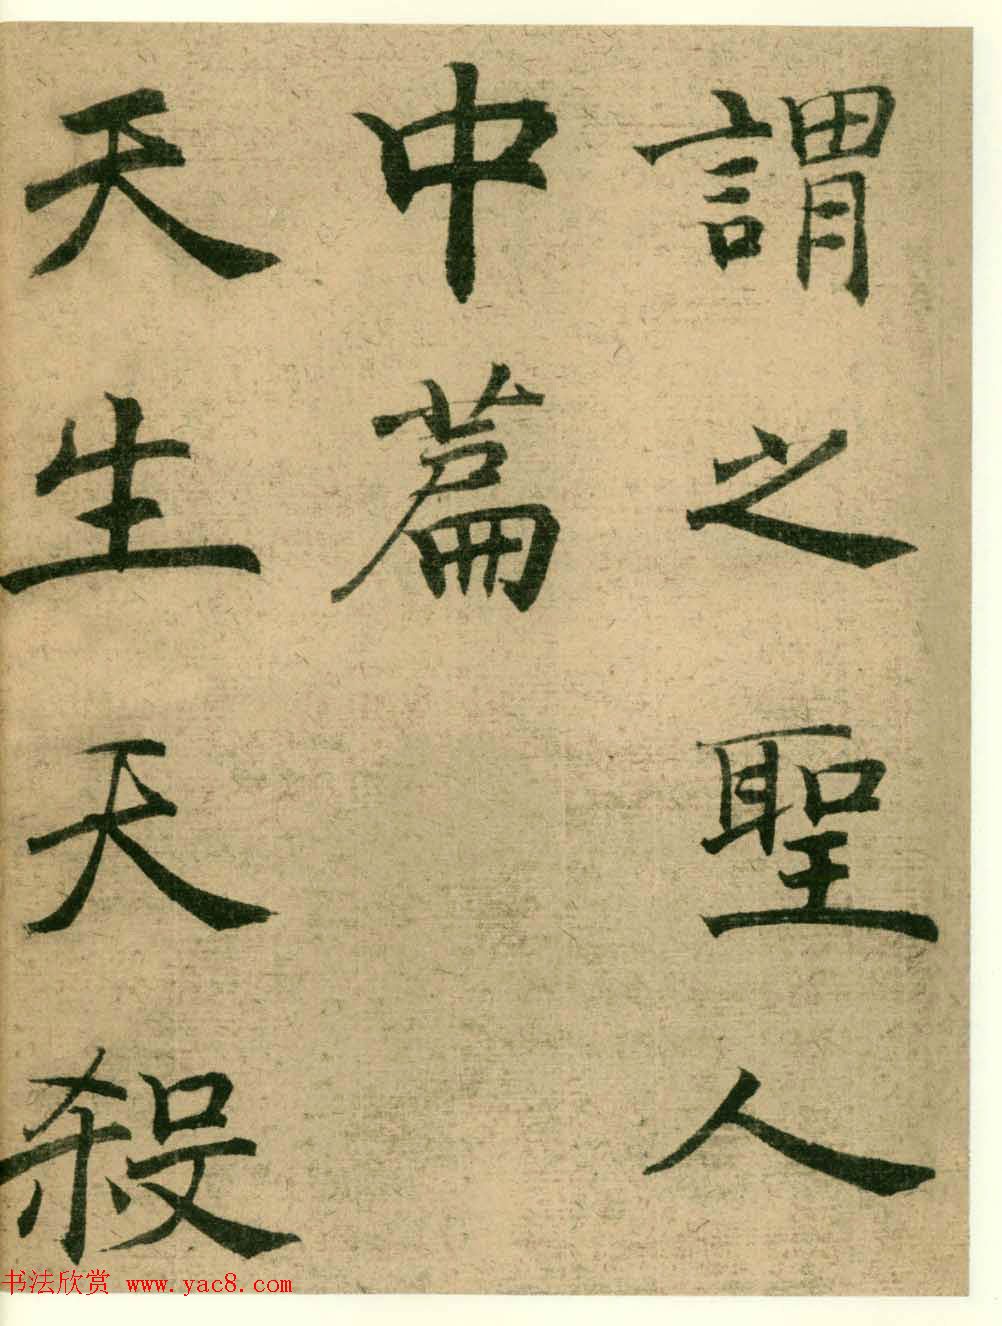 謂之聖人
中篇
天生天殺
书法欣赏 www.yac8.com